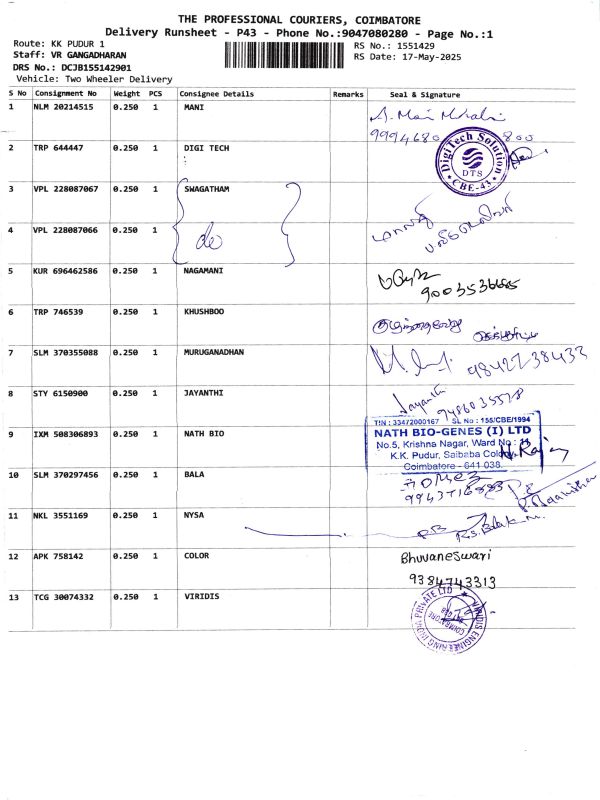 THE PROFESSIONAL COURIERS, COIMBATORE
Delivery Runsheet - P43 - Phone No.:9047080280 - Page No.:1
Route: KK PUDUR 1
Staff: VR GANGADHARAN
DRS No.: DCJB155142901
Vehicle: Two Wheeler Delivery
RS No.: 1551429
RS Date: 17-May-2025
S No Consignment No Weight PCS Consignee Details Remarks Seal & Signature
1 NLM 20214515 0.250 1 MANI
9994680 800
2 TRP 644447 0.250 1 DIGI TECH
:
DigiTech Solution
DTS
CBE-43
3 VPL 228087067 0.250 1 SWAGATHAM
4 VPL 228087066 0.250 1 do
5 KUR 696462586 0.250 1 NAGAMANI
9003536685
6 TRP 746539 0.250 1 KHUSHBOO
7 SLM 370355088 0.250 1 MURUGANADHAN
9842738433
8 STY 6150900 0.250 1 JAYANTHI
Jayanthi
9486035578
9 IXM 508306893 0.250 1 NATH BIO
TIN : 33472000167 SL No : 155/CBE/1994
NATH BIO-GENES (I) LTD
No.5, Krishna Nagar, Ward No : 11
K.K. Pudur, Saibaba Colony
Coimbatore - 641 038.
10 SLM 370297456 0.250 1 BALA
11 NKL 3551169 0.250 1 NYSA
12 APK 758142 0.250 1 COLOR
Bhuvaneswari
9384743313
13 TCG 30074332 0.250 1 VIRIDIS
VIRIDIS ENGINEERING INDIA PRIVATE LTD
COIMBATORE